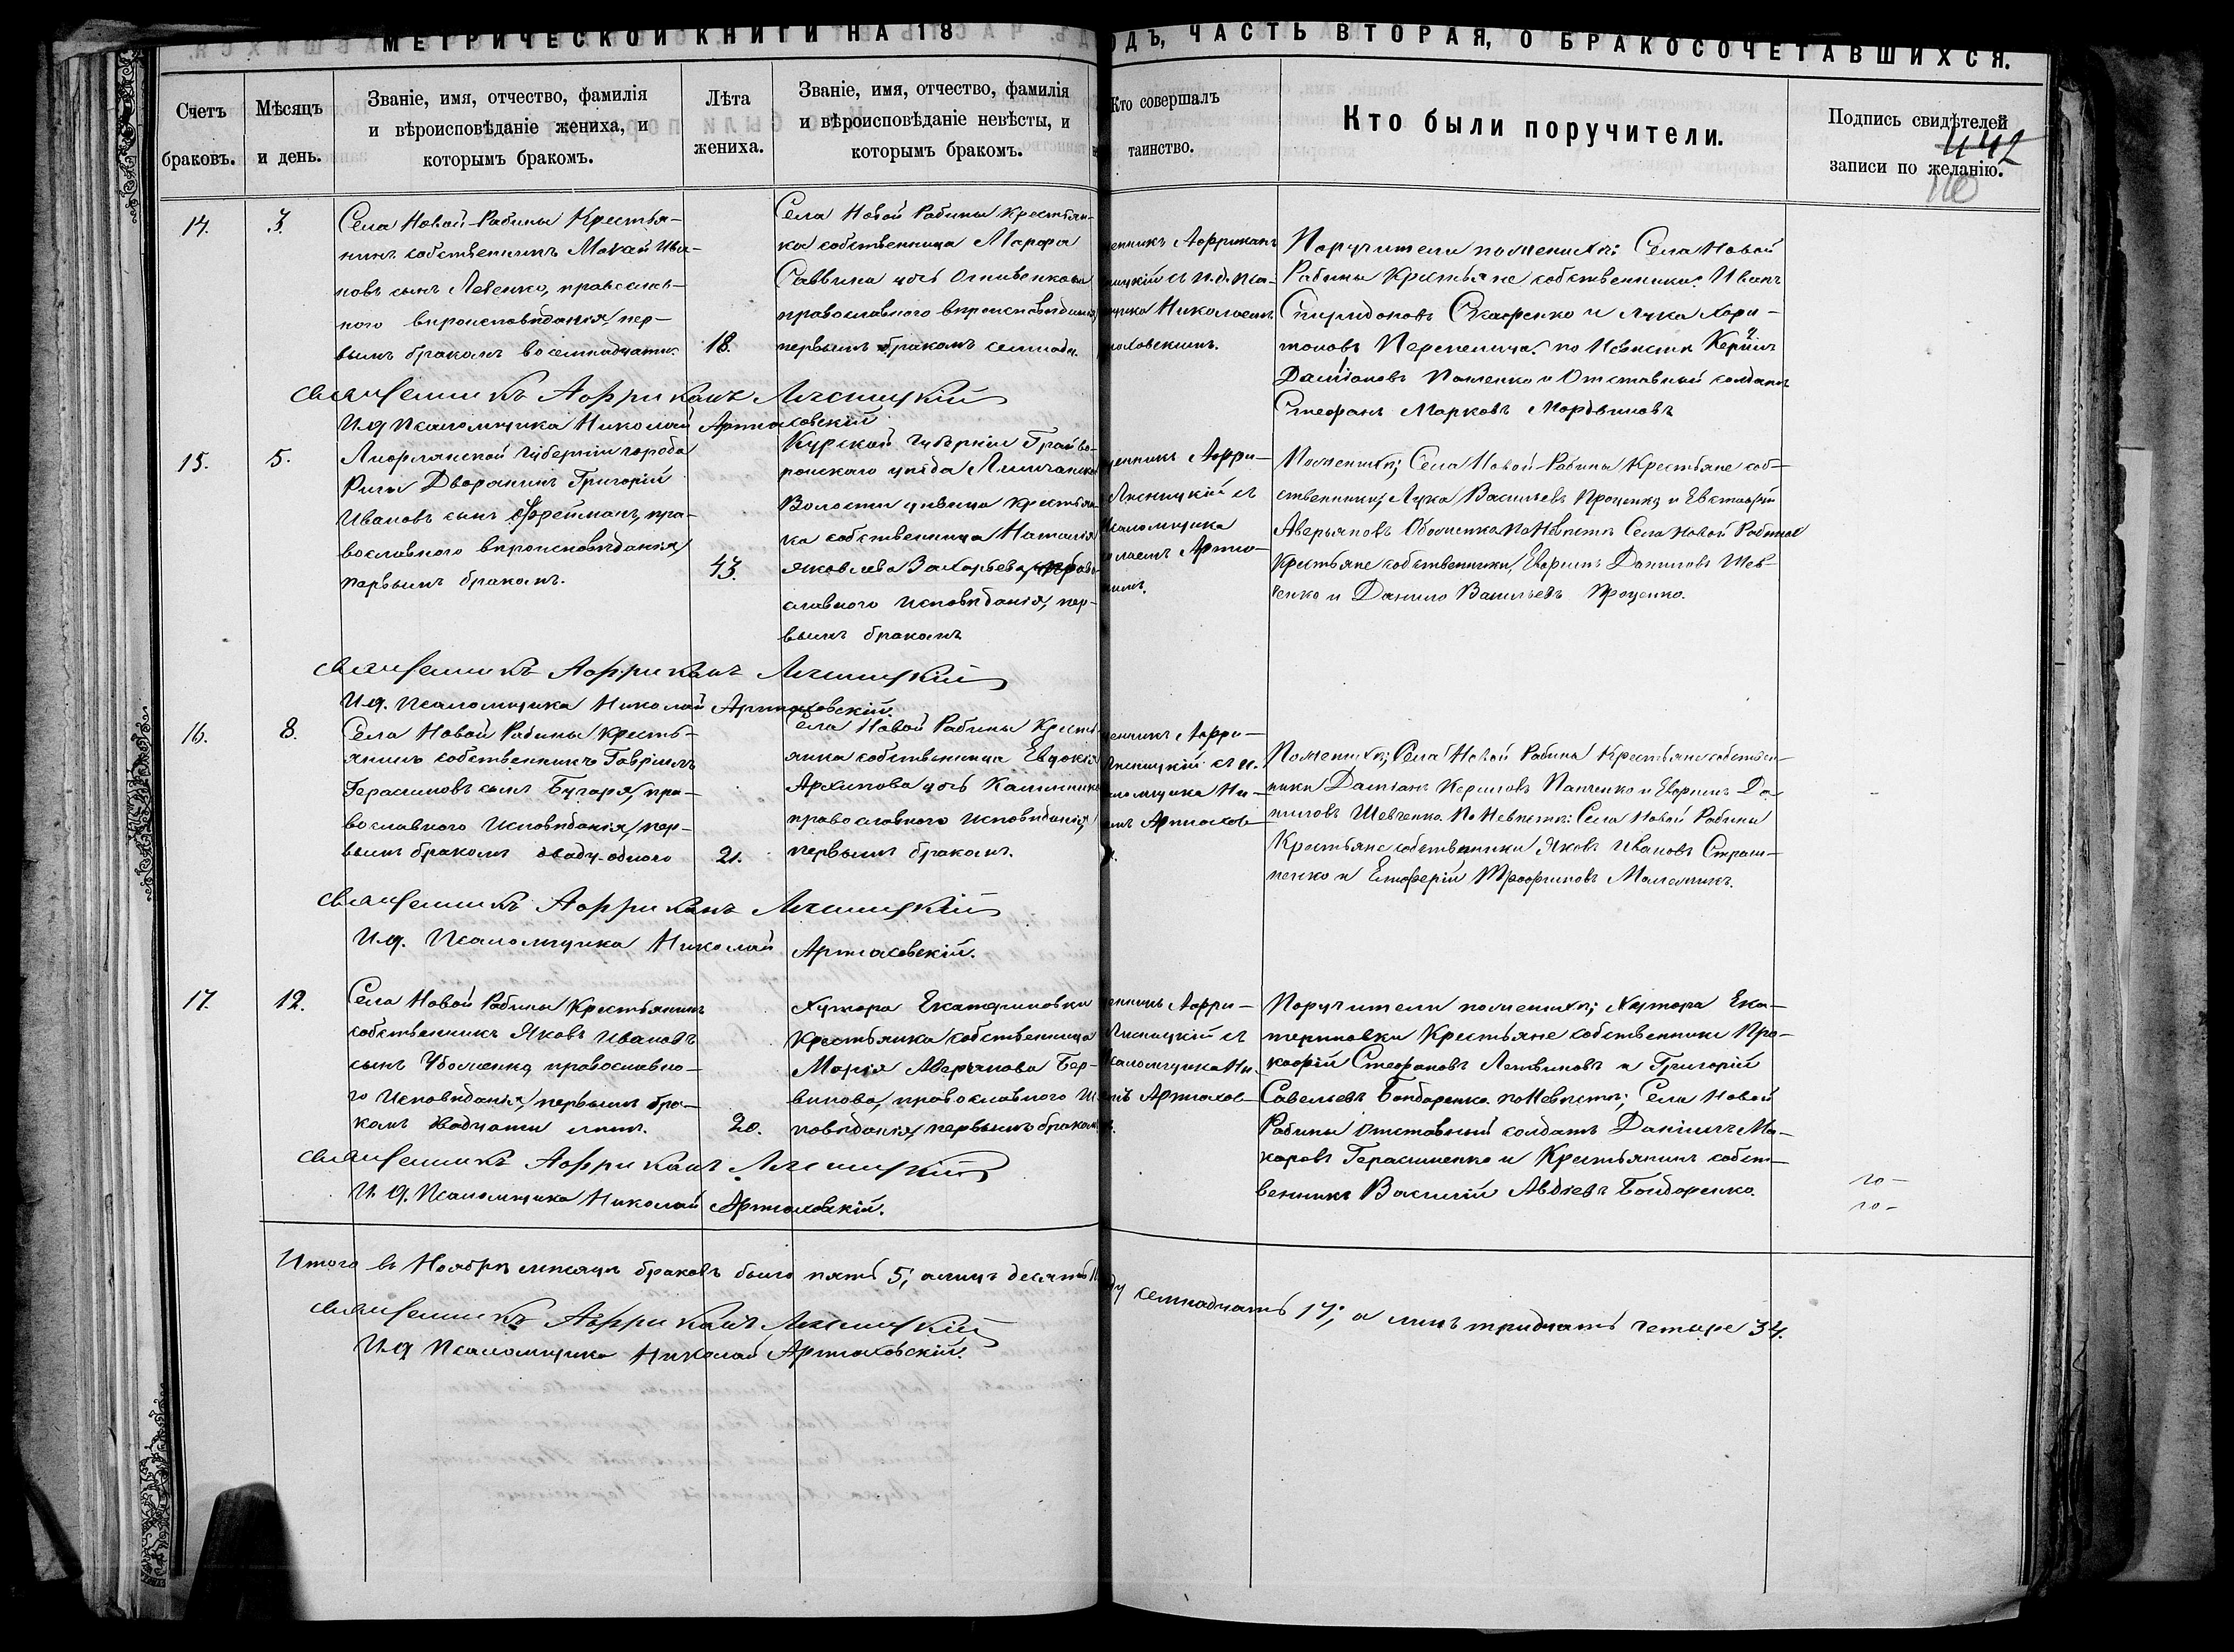 МЕТРИЧЕСКОЙ КНИГИ НА 18
ОДЪ, ЧАСТЬ ВТОРАЯ, О БРАКОСОЧЕТАВШИХСЯ.
Счетъ
браковъ.
Мѣсяцъ
и день.
Званіе, имя, отчество, фамилія
и вѣроисповѣданіе жениха, и
которымъ бракомъ.
Лѣта
жениха.
Званіе, имя, отчество, фамилія
и вѣроисповѣданіе невѣсты, и
которымъ бракомъ.
Кто совершалъ
таинство.
Кто были поручители.
Подпись свидѣтелей
записи по желанію.
442
14.
3.
Села Новой-Рабины Крестья-
нинъ собственникъ Мокай Ива-
новъ сынъ Левенко, православ-
ного вѣроисповѣданія, пер-
вымъ бракомъ восемнадцати.
18.
Села Новой Рабины Крестьян-
ка собственница Марфа
Саввина дочь
православного вѣроисповѣданія,
первымъ бракомъ семнадц.
енникъ Аффриканъ
ницкій съ и.д. Пса-
мщика Николаемъ
юховскимъ.
Поручители по женихѣ: Села Новой
Рабины Крестьяне собственники: Иванъ
Спиридоновъ и Лука Хари-
тоновъ Перепелица. по Невѣстѣ
Даміановъ и Отставный солдатъ
Стефанъ Марковъ Мордвиновъ
священникъ Аффриканъ Лисницкій
И.д Псаломщика Николай Артюховскій
15.
5.
Лифлянской Губерніи города
Риги Дворянинъ Григорій
Ивановъ сынъ пра-
вославного вѣроисповѣданія,
первымъ бракомъ.
43.
Курской Губерніи Грайво-
ронскаго уѣзда
Волости дивица Крестьян-
ка собственница Наталія
Яковлева Захарьева, право-
славного Исповѣданія, пер-
вымъ бракомъ
щенникъ Аффри-
Лисницкій съ
Псаломщика
олаемъ Артю-
кимъ.
По женихѣ; Села Новой-Рабины Крестьяне соб-
ственники, Лука Васильевъ Проценко и Евстафій
Аверьяновъ По Невѣстѣ Села Новой Рабины
Крестьяне собственники, Ефримъ Даниловъ Шев-
ченко и Данило Васильевъ Проценко.
священникъ Аффриканъ Лисницкій
И.д. Псаломщика Николай Артюховскій.
16.
8.
Села Новой Рабины Кресть-
янинъ собственникъ Гавріилъ
Герасимовъ сынъ Бугаря, пра-
вославного Исповѣданія, пер-
вымъ бракомъ двадц. одного
21.
Села Новой Рабины Кресть-
янка собственница Евдокія
Архипова дочь
православного Исповѣданія,
первымъ бракомъ.
енникъ Аффри-
Лисницкій съ и.
аломщика Ни-
мъ Артюхов-
По женихѣ; Села Новой Рабины Крестьяне собствен-
ники Даміанъ и Ефримъ Да-
ниловъ Шевченко. По Невѣстѣ: Села Новой Рабины
Крестьяне собственники Яковъ Ивановъ
и Елеферій Трофимовъ
священникъ Аффриканъ Лисницкій
И.д. Псаломщика Николай Артюховскій.
17.
12.
Села Новой Рабины Крестьянинъ
собственникъ Яковъ Ивановъ
сынъ православно-
го Исповѣданія, первымъ бра-
комъ двадцати лѣтъ.
20.
Хутора Екатериновки
Крестьянка собственница
Марія Аверьянова Бер-
винова, православного Ис-
повѣданія, первымъ бракомъ
енникъ Аффри-
Лисницкій съ
Псаломщика Ни-
мъ Артюхов-
Поручители по женихѣ; Хутора Ека-
териновки Крестьяне собственники Про-
кофій Стефановъ Литвиновъ и Григорій
Савельевъ Бондаренко. по Невѣстѣ; Села Новой
Рабины отставный солдатъ Даніилъ Ма-
каровъ Герасименко и Крестьянинъ собст-
венникъ Василій Авдіевъ Бондаренко.
священникъ Аффриканъ Лисницкій
И.д. Псаломщика Николай Артюховскій.
Итого въ Ноябрѣ мѣсяцѣ браковъ было пять 5, а лицъ десять
ду семнадцать 17; а лицъ тридцать четыре 34.
священникъ Аффриканъ Лисницкій
И.д Псаломщика Николай Артюховскій.